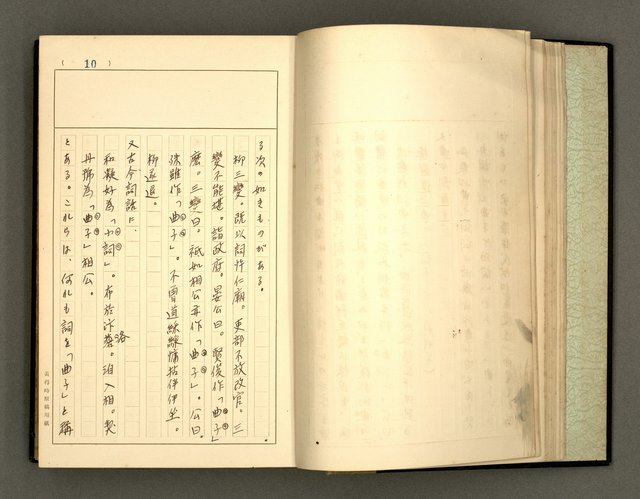 ( 10 )
る次の如きものがある。
柳三變。既以詞忤仁廟。吏部不放改官。三
變不能堪。詣政府。晏公曰。賢俊作「曲子」
麼。三變曰。祇如相公亦作「曲子」。公曰。
殊雖作「曲子」。不曾道綵線慵拈伴伊坐。
柳遂退。
又古今詞話に、
和凝好為「小詞」。布於汴洛。洎入相。契
丹號為「曲子」相公。
とある。これらは、何れも詞を「曲子」と稱
黃得時原稿用紙